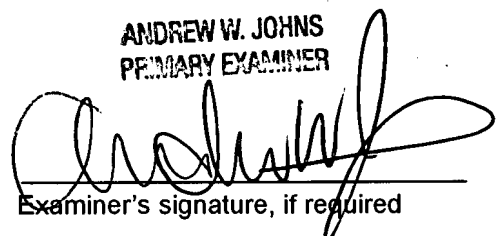 ANDREW W. JOHNS
PRIMARY EXAMINER
Examiner's signature, if required